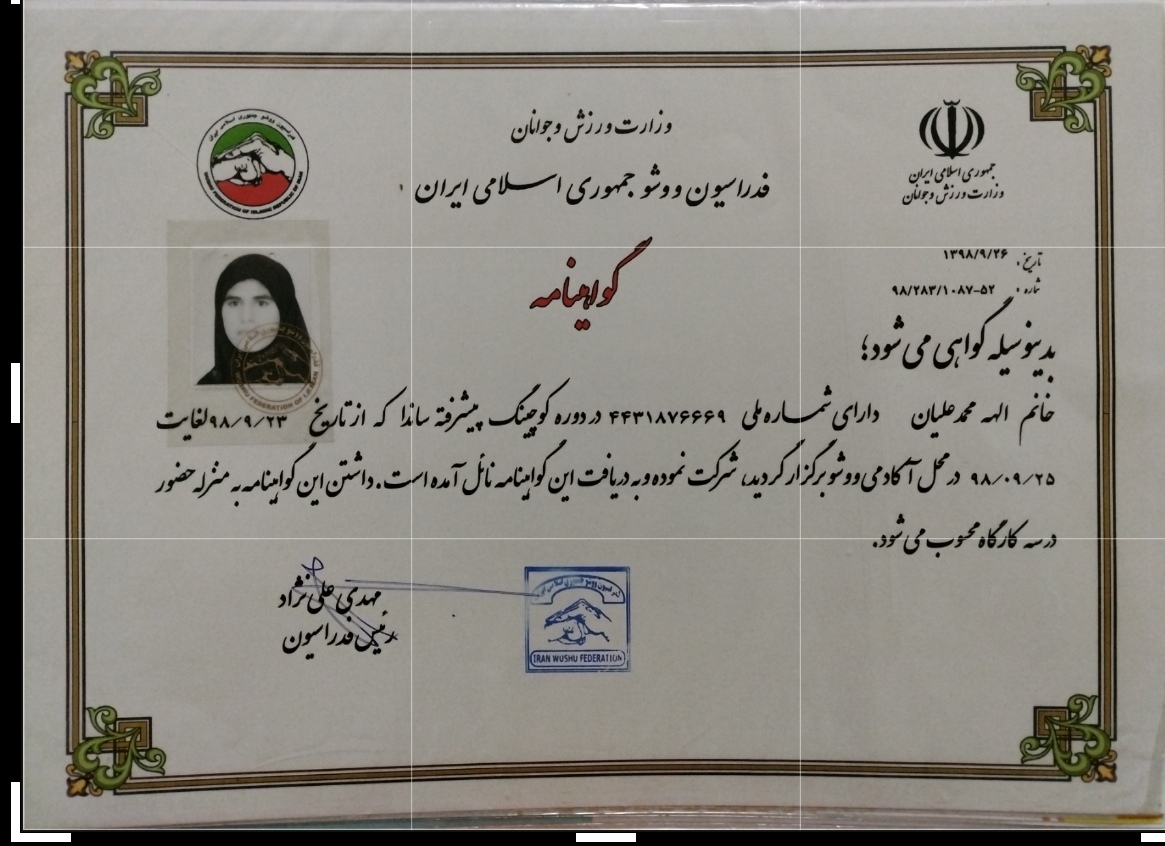 وزارت ورزش و جوانان
فدراسیون ووشو جمهوری اسلامی ایران
جمهوری اسلامی ایران
وزارت ورزش و جوانان
تاریخ: ۱۳۹۸/۹/۲۶
شماره: ۹۸/۲۸۳/۱۰۸۷-۵۲
گواهینامه
بدینوسیله گواهی می شود؛
خانم الهه محمدعلیان دارای شماره ملی ۴۴۳۱۸۷۶۶۶۹ در دوره کوچینگ پیشرفته ساندا که از تاریخ ۹۸/۹/۲۳ لغایت
۹۸/۰۹/۲۵ در محل آکادمی ووشو برگزار گردید، شرکت نموده و به دریافت این گواهینامه نائل آمده است. داشتن این گواهینامه به منزله حضور
در سه کارگاه محسوب می شود.
مهدی علی نژاد
رئیس فدراسیون
IRAN WUSHU FEDERATION